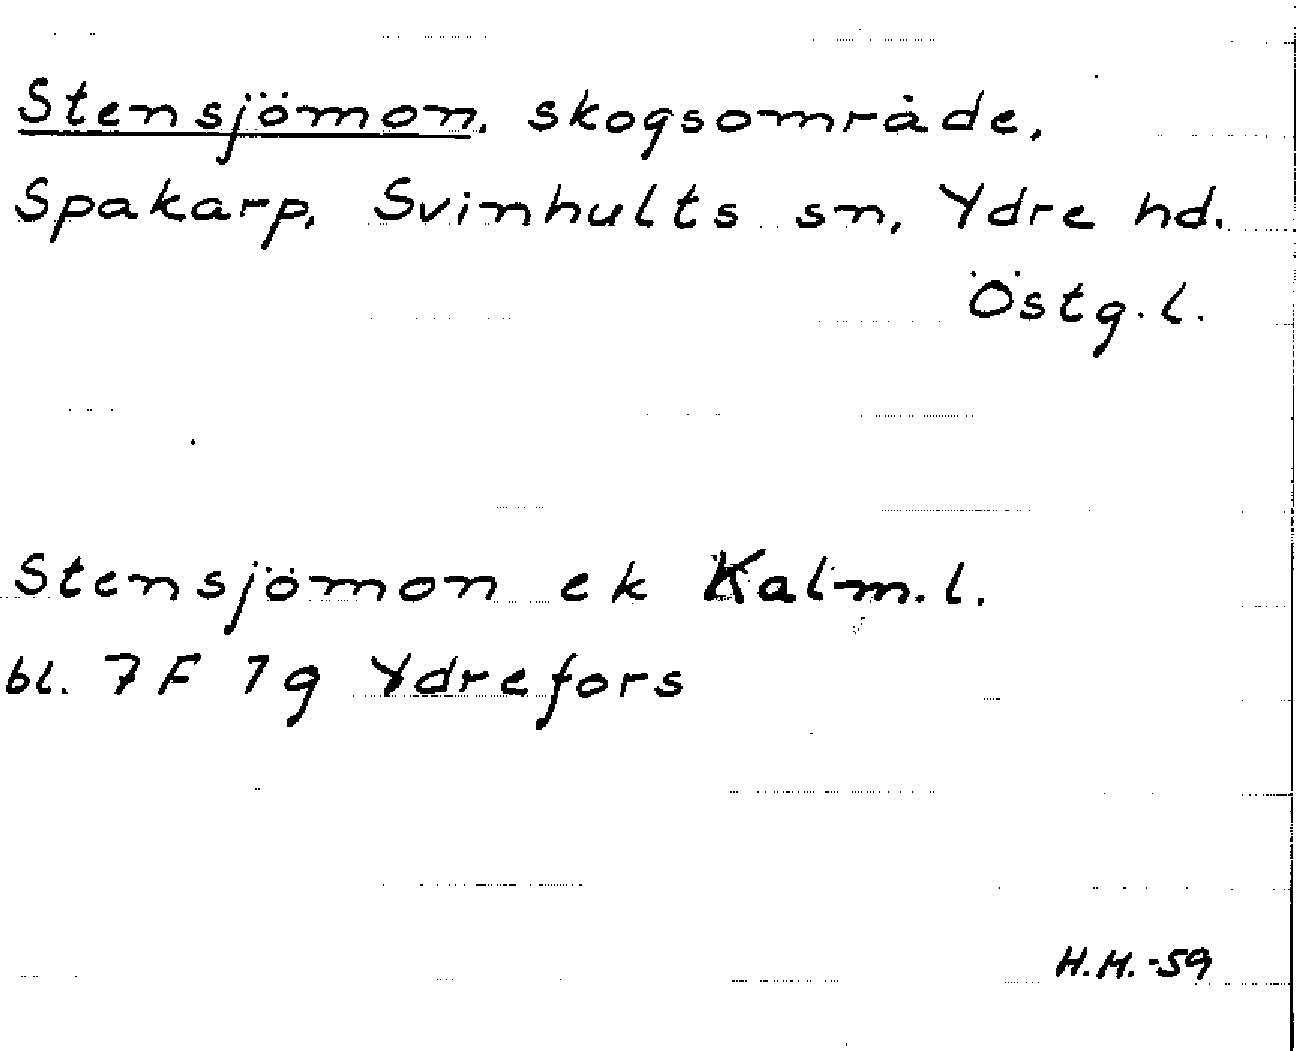 Stensjömon, skogsområde,
Spakarp, Svinhults sn, Ydre hd.
Östg.l.
Stensjömon ek Kalm.l.
bl. 7F 7g Ydrefors
H.M.-59